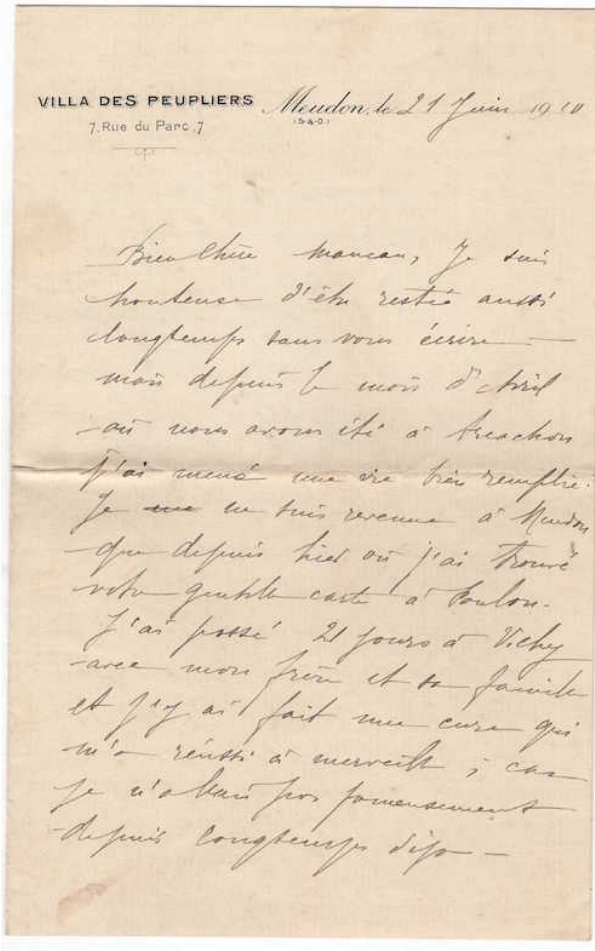 VILLA DES PEUPLIERS
7, Rue du Parc, 7
Meudon, le 21 Juin 1910
(S.&O.)
Bien Chère Maman, Je suis
honteuse d'être restée aussi
longtemps sans vous écrire —
mais depuis le mois d'Avril
où nous avons été à Arcachon
j'ai mené une vie bien remplie.
Je ne suis revenue à Meudon
que depuis hier où j'ai trouvé
votre gentille carte à
J'ai passé 21 jours à Vichy
avec mon frère et sa famille
et j'y ai fait une cure qui
m'a réussi à merveille ; car
je n'allais pas fameusement
depuis longtemps déjà —